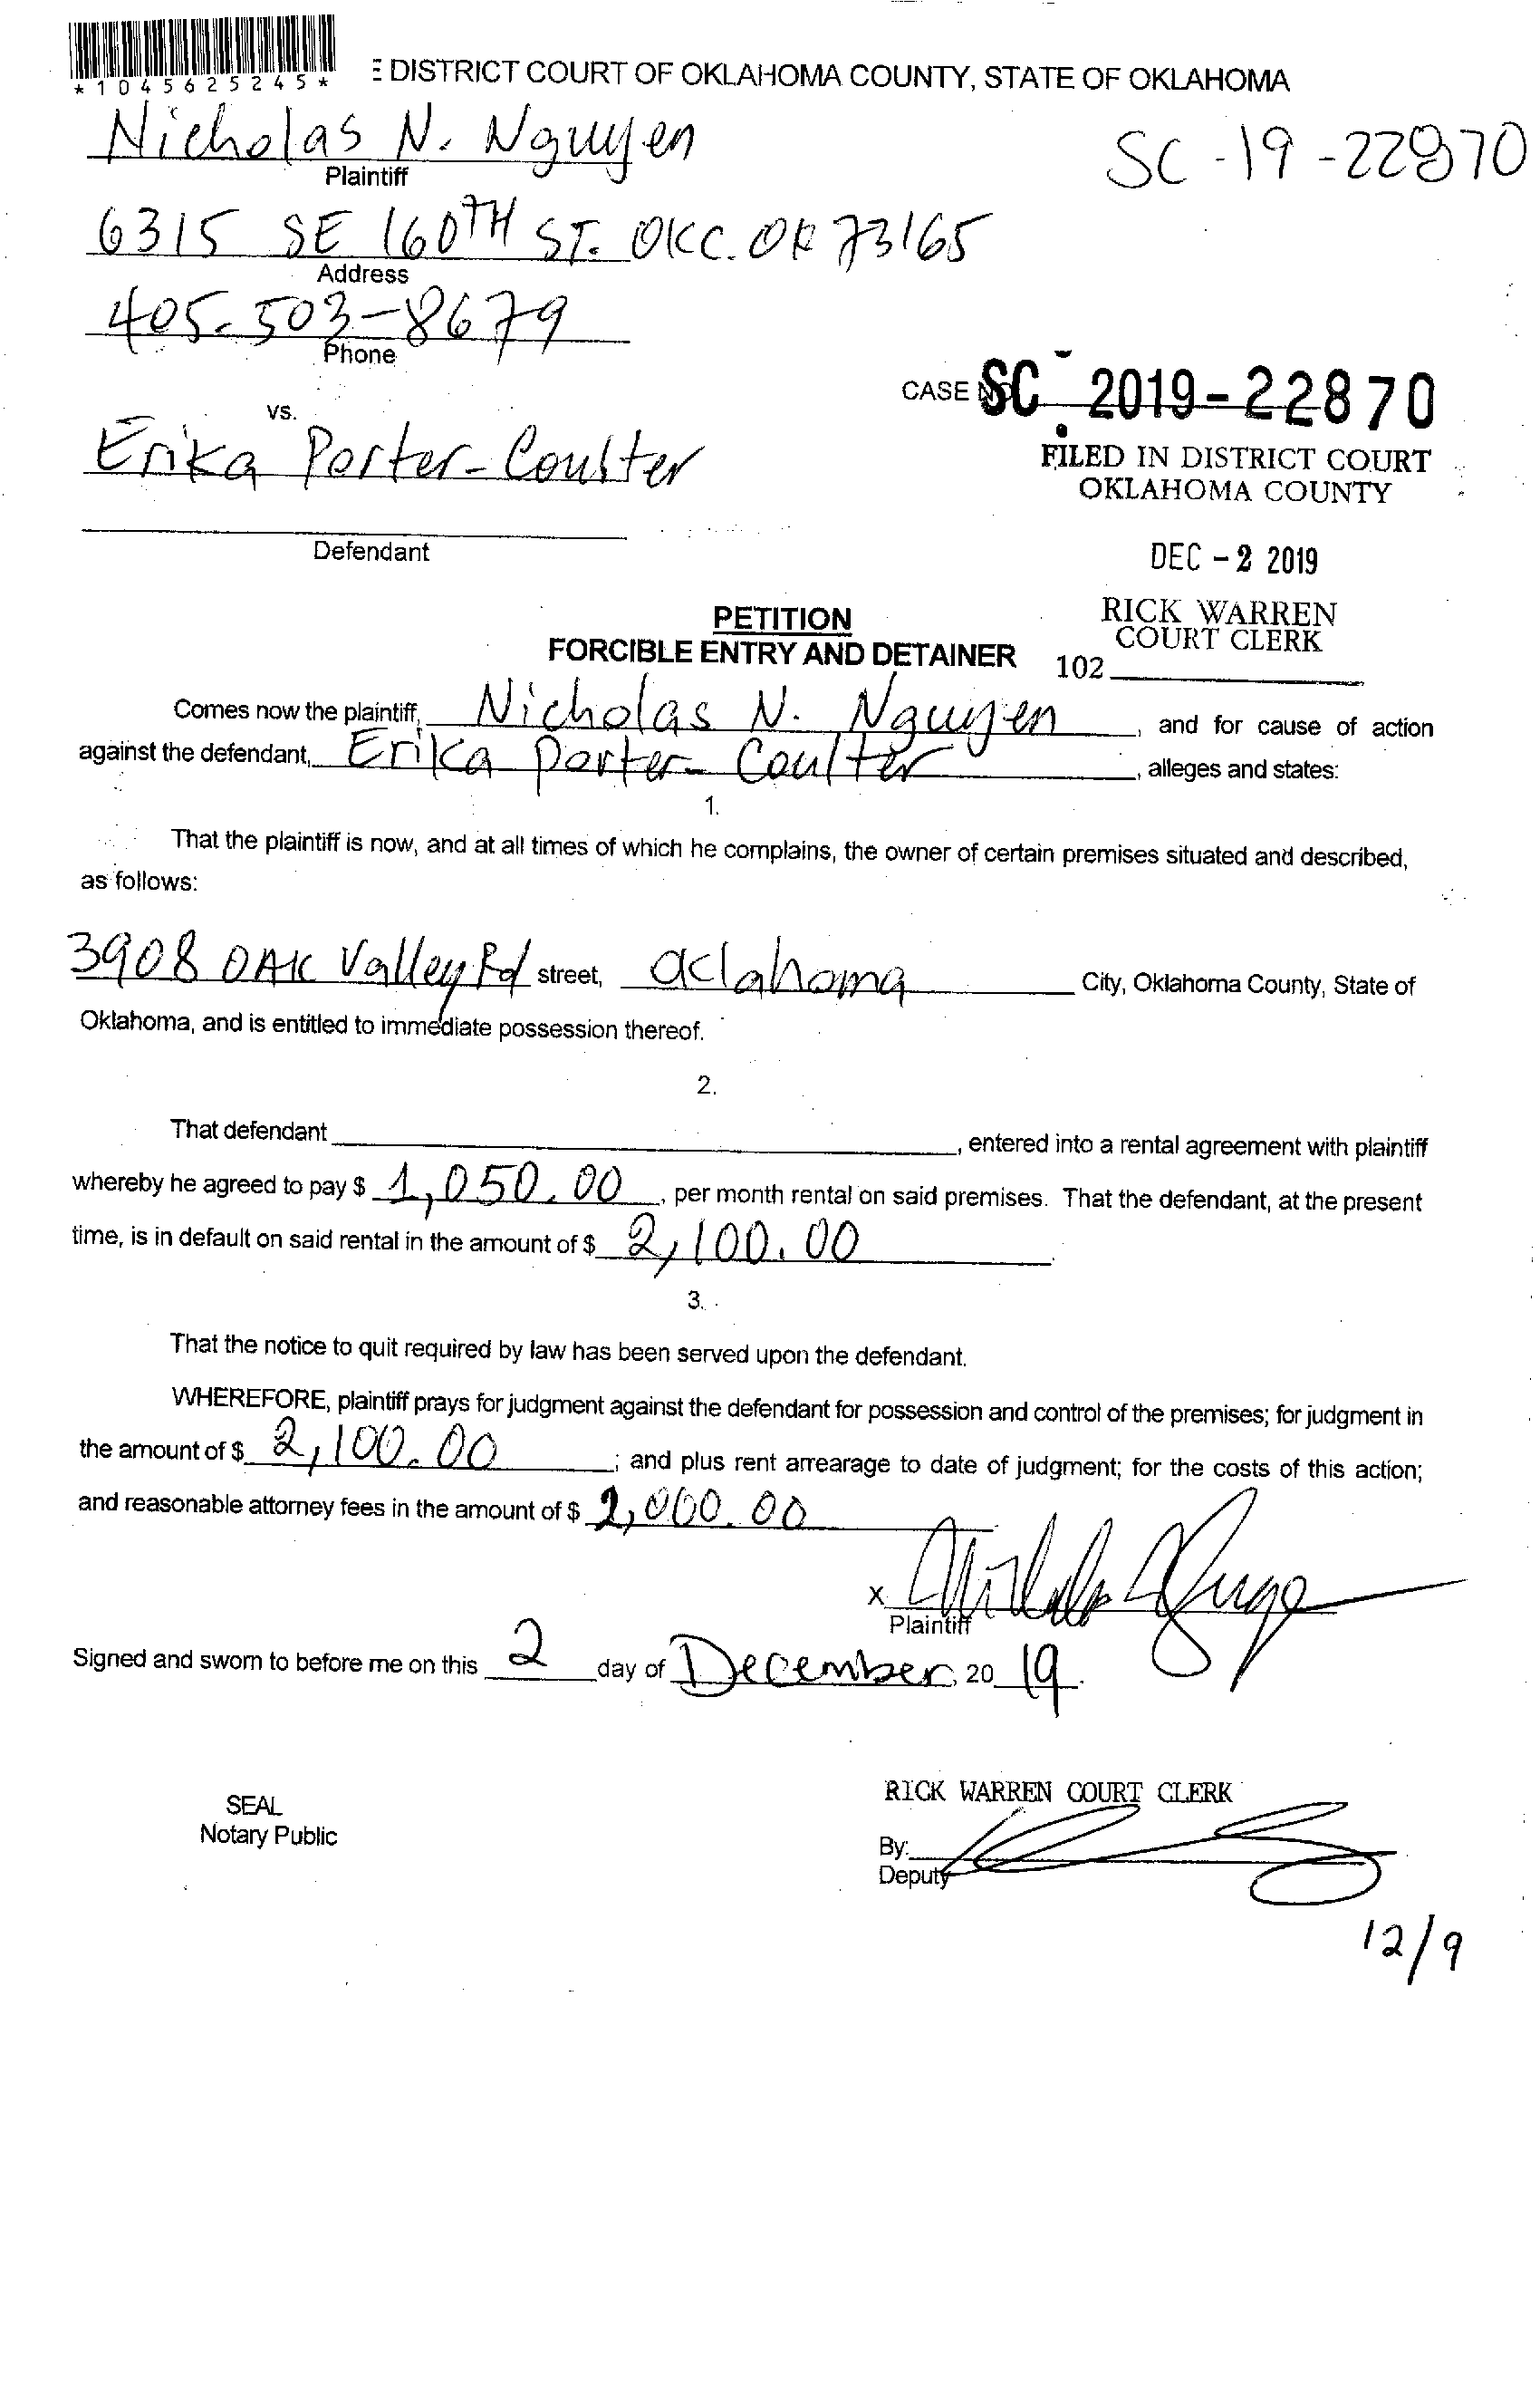 *1045625245*
E DISTRICT COURT OF OKLAHOMA COUNTY, STATE OF OKLAHOMA
Nicholas N. Nguyen
SC-19-22870
Plaintiff
6315 SE 160TH ST. OKC. OK 73165
Address
405-503-8679
Phone
CASE NO. SC 2019-22870
vs.
Erika Porter-Coulter
FILED IN DISTRICT COURT
OKLAHOMA COUNTY
Defendant
DEC -2 2019
PETITION
RICK WARREN
COURT CLERK
FORCIBLE ENTRY AND DETAINER
102
Comes now the plaintiff, Nicholas N. Nguyen, and for cause of action
against the defendant, Erika Porter-Coulter, alleges and states:
1.
That the plaintiff is now, and at all times of which he complains, the owner of certain premises situated and described,
as follows:
3908 OAK Valley Rd street, Oclahoma City, Oklahoma County, State of
Oklahoma, and is entitled to immediate possession thereof.
2.
That defendant , entered into a rental agreement with plaintiff
whereby he agreed to pay $ 1,050.00, per month rental on said premises. That the defendant, at the present
time, is in default on said rental in the amount of $ 2,100.00.
3.
That the notice to quit required by law has been served upon the defendant.
WHEREFORE, plaintiff prays for judgment against the defendant for possession and control of the premises; for judgment in
the amount of $ 2,100.00; and plus rent arrearage to date of judgment; for the costs of this action;
and reasonable attorney fees in the amount of $ 2,000.00
X
Plaintiff
Signed and sworn to before me on this 2 day of December, 2019.
RICK WARREN COURT CLERK
SEAL
Notary Public
By:
Deputy
12/9